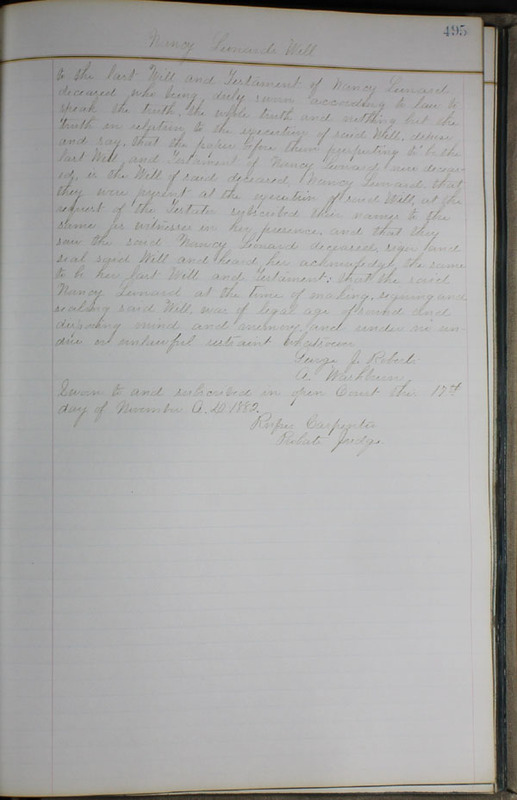 495
Nancy Limards Will
to the last Will and Testament of Nancy Limard
deceased, who being duly sworn according to law to
speak the truth, the whole truth and nothing but the
truth in relation to the execution of said Will, depose
and say, that the paper before them purporting to be the
last Will and Testament of Nancy Limard now deceas-
ed, is the Will of said deceased, Nancy Limard, that
they were present at the execution of said Will, at the
request of the Testator subscribed their names to the
same as witnesses in her presence, and that they
saw the said Nancy Limard deceased, sign and
seal said Will and heard her acknowledge the same
to be her last Will and Testament; that the said
Nancy Limard at the time of making, signing and
sealing said Will, was of legal age of sound and
disposing mind and memory, and under no un-
due or unlawful restraint whatsoever
George J.
A. Washburn
Sworn to and subscribed in open Court this 17th
day of November A.D. 1882.
Rufus Carpenter
Probate Judge